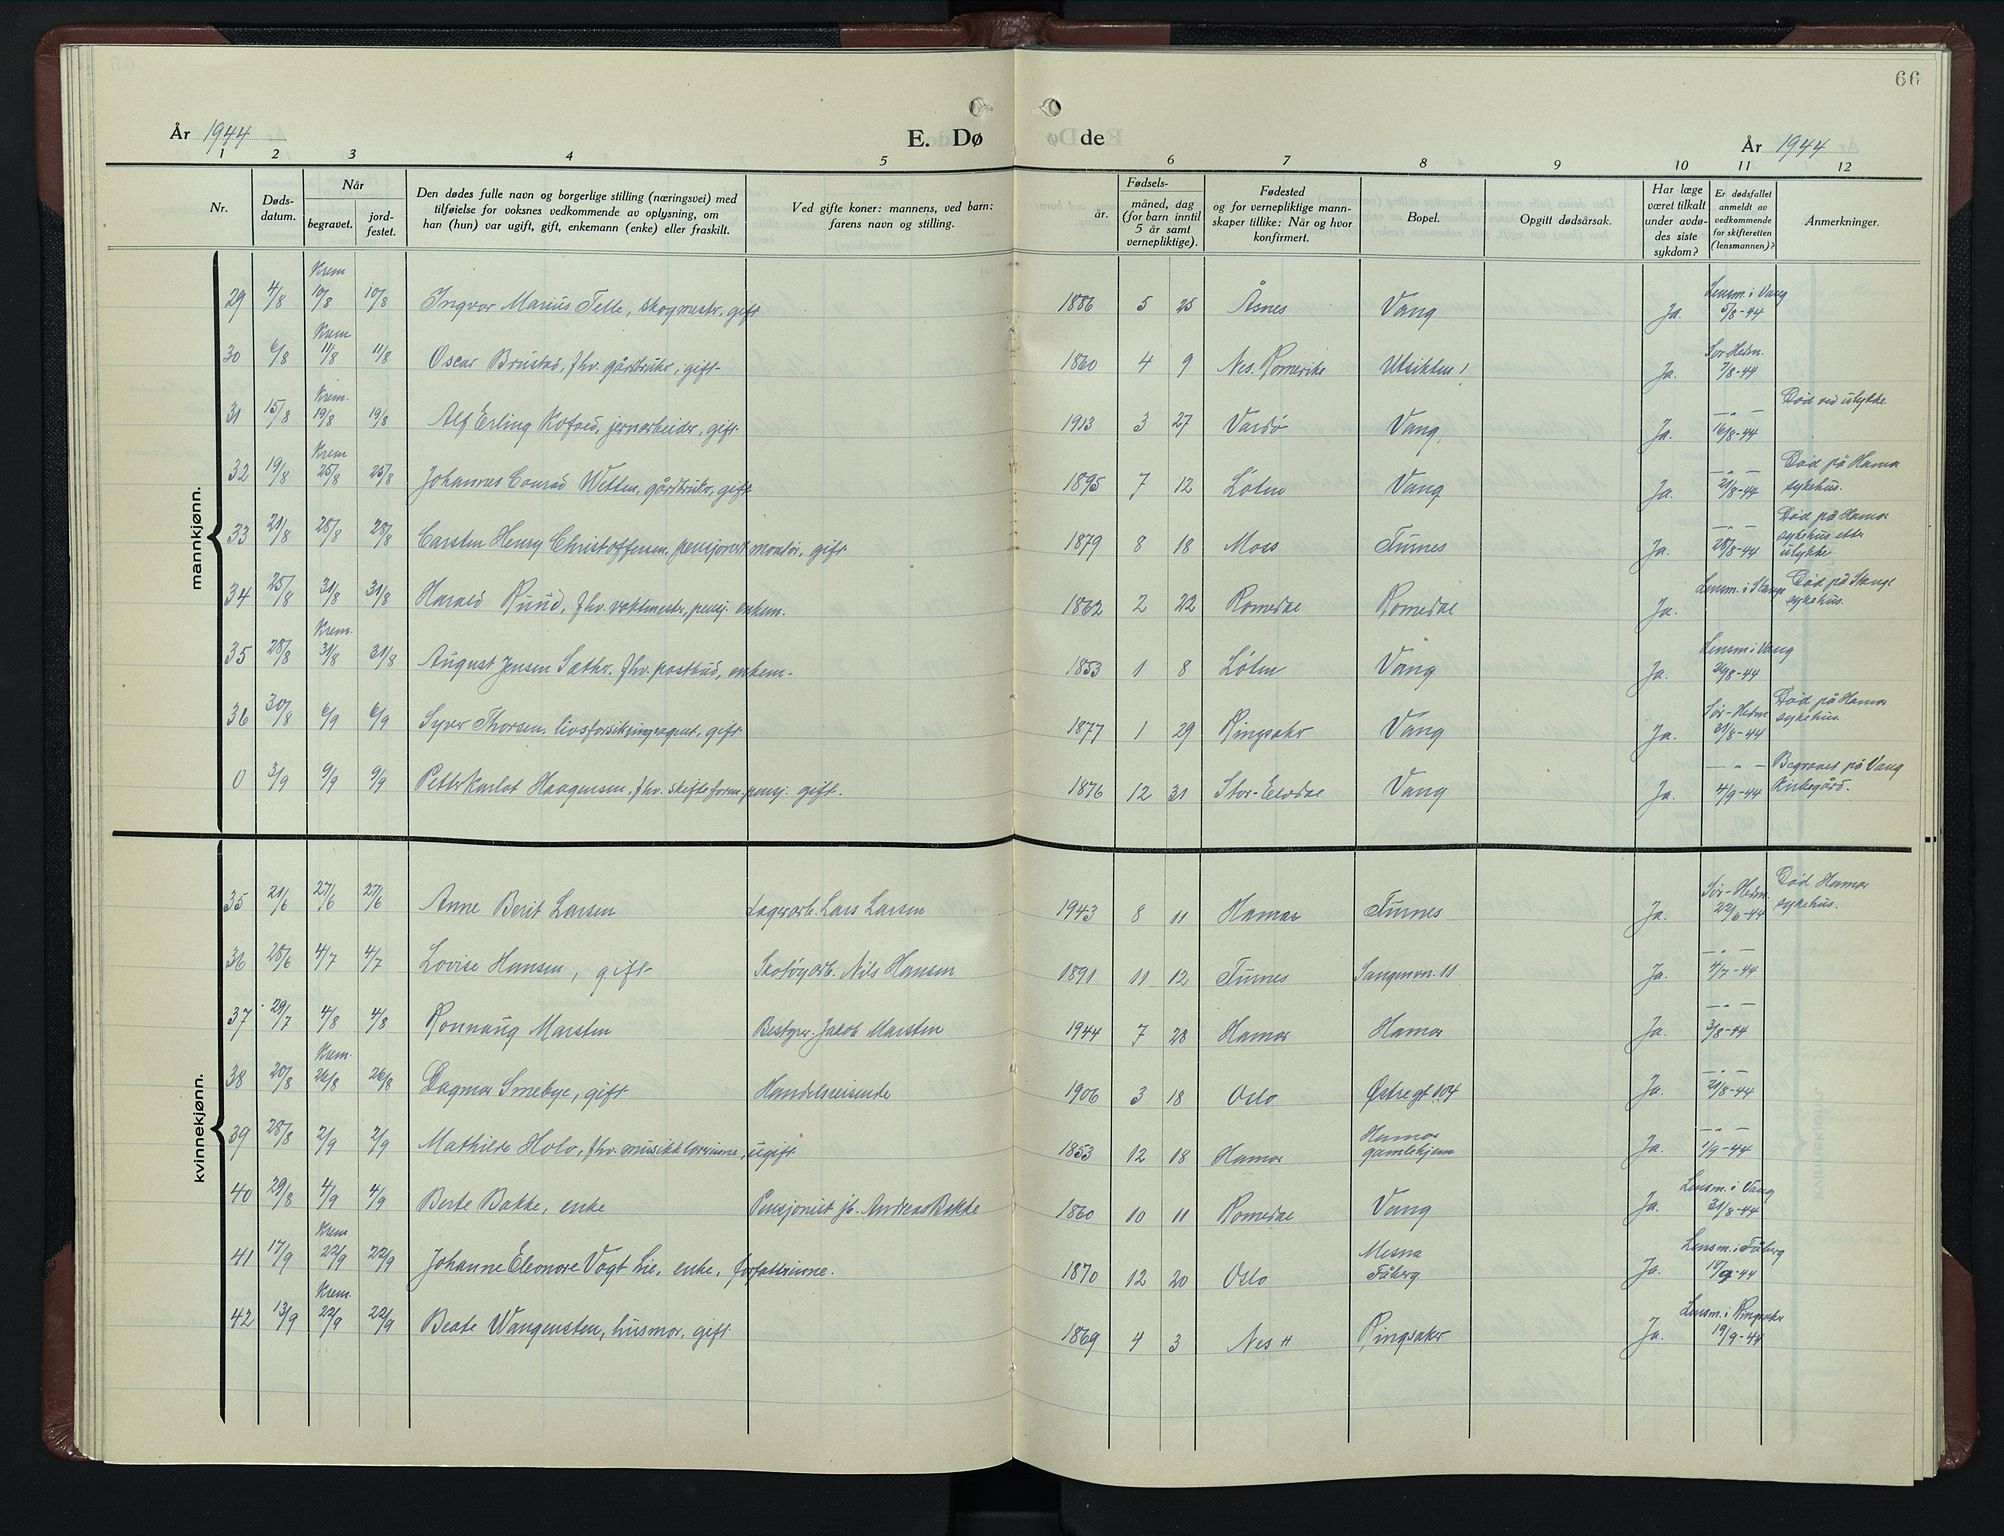 66
År 1944 E. Dø de År 1944
1 2 3 4 5 6 7 8 9 10 11 12
Nr. Døds-datum. Når begravet. jord-festet. Den dødes fulle navn og borgerlige stilling (næringsvei) med tilføielse for voksnes vedkommende av oplysning, om han (hun) var ugift, gift, enkemann (enke) eller fraskilt. Ved gifte koner: mannens, ved barn: farens navn og stilling. Fødsels- år. måned, dag (for barn inntil 5 år samt vernepliktige). Fødested og for vernepliktige mannskaper tillike: Når og hvor konfirmert. Bopel. Opgitt dødsårsak. Har læge været tilkalt under avdødes siste sykdom? Er dødsfallet anmeldt av vedkommende for skifteretten (lensmannen)? Anmerkninger.
mannkjønn.
29 4/8 Krem 10/8 10/8 Ingvar Marius Telle, skogmestr, gift 1886 5 25 Åsnes Vang Ja. Lensm. i Vang 5/8-44
30 6/8 Krem 11/8 11/8 Oscar Brustad, fhv. gårdbrukr, gift 1860 4 9 Nes. Romerike Utsikten Ja. Sør-Hedm. 7/8-44
31 15/8 Krem. 19/8 19/8 Alf Erling Kofoed, jernarbeider, gift 1913 3 27 Vardø Vang Ja. —"— 16/8-44 Død ved ulykke
32 19/8 Krem 25/8 25/8 Johannes Conrad Wetten, gårdbrukr, gift 1895 7 12 Løten Vang Ja. —"— 21/8-44 Død på Hamar sykehus.
33 21/8 28/8 28/8 Carsten Henry Christoffersen, pensjonert montør, gift 1879 8 18 Moss Furnes Ja. —"— 28/8-44 Død på Hamar sykehus etter ulykke
34 25/8 31/8 31/8 Harald Ruud, fhv. vaktmestr, pensj. enkem. 1862 2 22 Romedal Romedal Ja. Lensm. i Stange Død på Stange sykehus.
35 28/8 Krem. 31/8 31/8 August Jensen Sæther, fhv. postbud, enkem. 1853 1 8 Løten Vang Ja. Lensm i Vang 29/8-44
36 30/8 6/9 6/9 Syver Thorsen, livsforsikringsagent, gift 1877 1 29 Ringsakr Vang Ja. Sør-Hedm 31/8-44 Død på Hamar sykehus.
0 3/9 9/9 9/9 Petter Karlot Haagensen, fhv. skifteform. pensj. gift. 1876 12 31 Stor-Elvdal Vang Ja. —"— 4/9-44 Begravet på Vang Kirkegård.
kvinnekjønn.
35 21/6 27/6 27/6 Anne Berit Larsen Lagerarb. Lars Larsen 1943 8 11 Hamar Furnes Ja. Sør-Hedm. 22/6-44 Død Hamar sykehus.
36 28/6 4/7 4/7 Lovise Hansen, gift Skotøyarb. Nils Hansen 1891 11 12 Furnes Sangenvn. 11 Ja. —"— 4/7-44
37 29/7 4/8 4/8 Ronnaug Marsten Bestyrer Jakob Marsten 1944 7 28 Hamar Hamar Ja. —"— 3/8-44
38 20/8 Krem. 26/8 26/8 Dagmar Smebye, gift Handelsreisende 1906 3 18 Oslo Østregt 104 Ja. —"— 21/8-44
39 28/8 2/9 2/9 Mathilde Holo, fhv. musikklærerinne, ugift 1853 12 18 Hamar Hamar gamlehjem Ja. —"— 1/9-44
40 29/8 4/9 4/9 Berte Bakke, enke Pensjonist jb. Andreas Bakke 1860 10 11 Romedal Vang Ja. Lensm. i Vang 31/8-44
41 17/9 Krem 22/9 22/9 Johanne Eleonore Vogt Lie, enke, forfatterinne. 1870 12 20 Oslo Mesna Fåberg Ja. Lensm. i Fåberg 18/9-44
42 13/9 Krem. 22/9 22/9 Beate Wangensten, husmor, gift 1869 4 3 Nes H Ringsaker Ja. Lensm. i Ringsakr 19/9-44